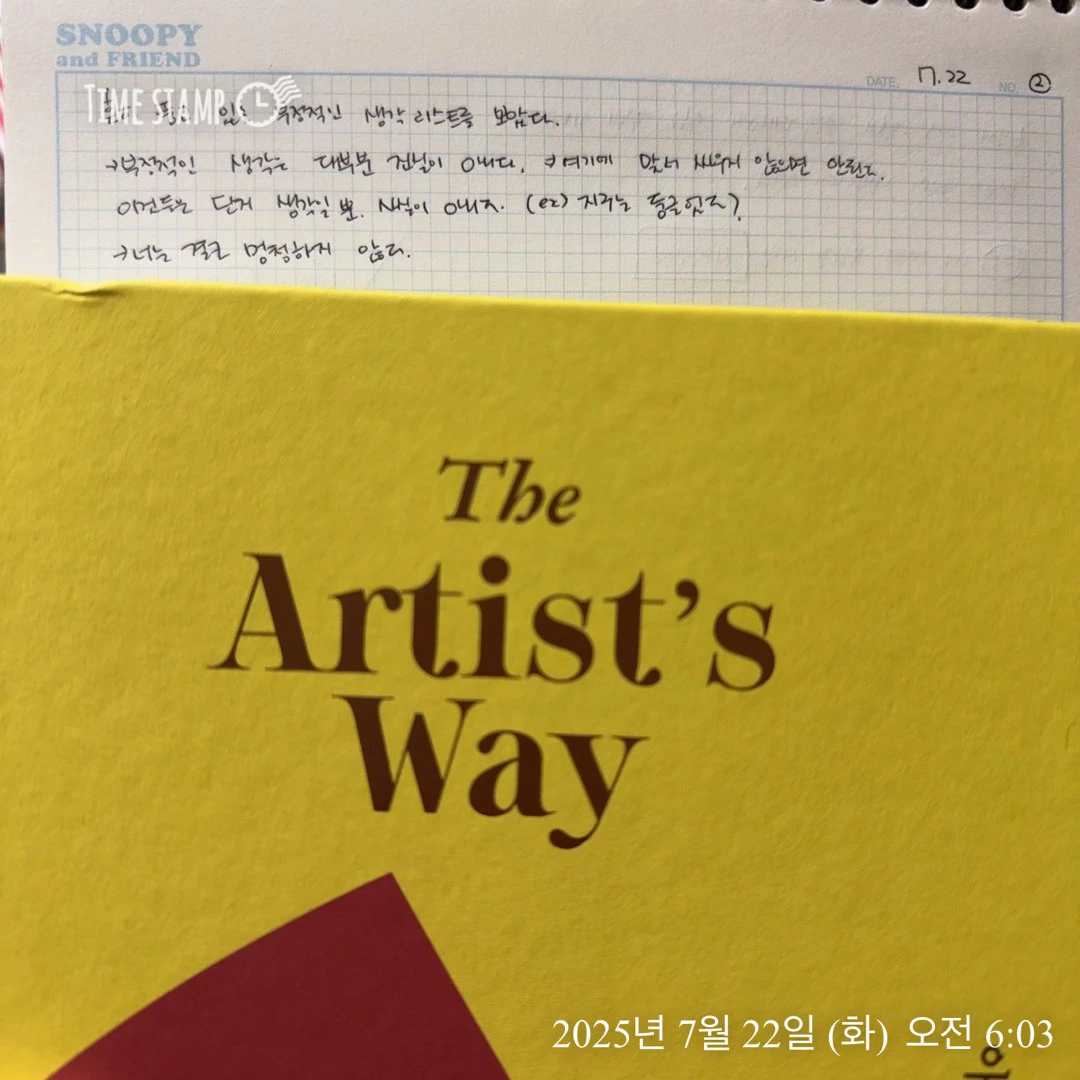 SNOOPY
and FRIEND
DATE. 7.22 NO. ②
TIME STAMP
있는 부정적인 생각 리스트를 보았다.
→부정적인 생각은 대부분 진실이 아니다. → 여기에 맞서 싸우지 않으면 안된다.
이것들은 단지 생각일 뿐. 사실이 아니죠. (ex) 지구는 둥글었죠?
→너는 결코 멍청하지 않다.
The
Artist's
Way
2025년 7월 22일 (화) 오전 6:03